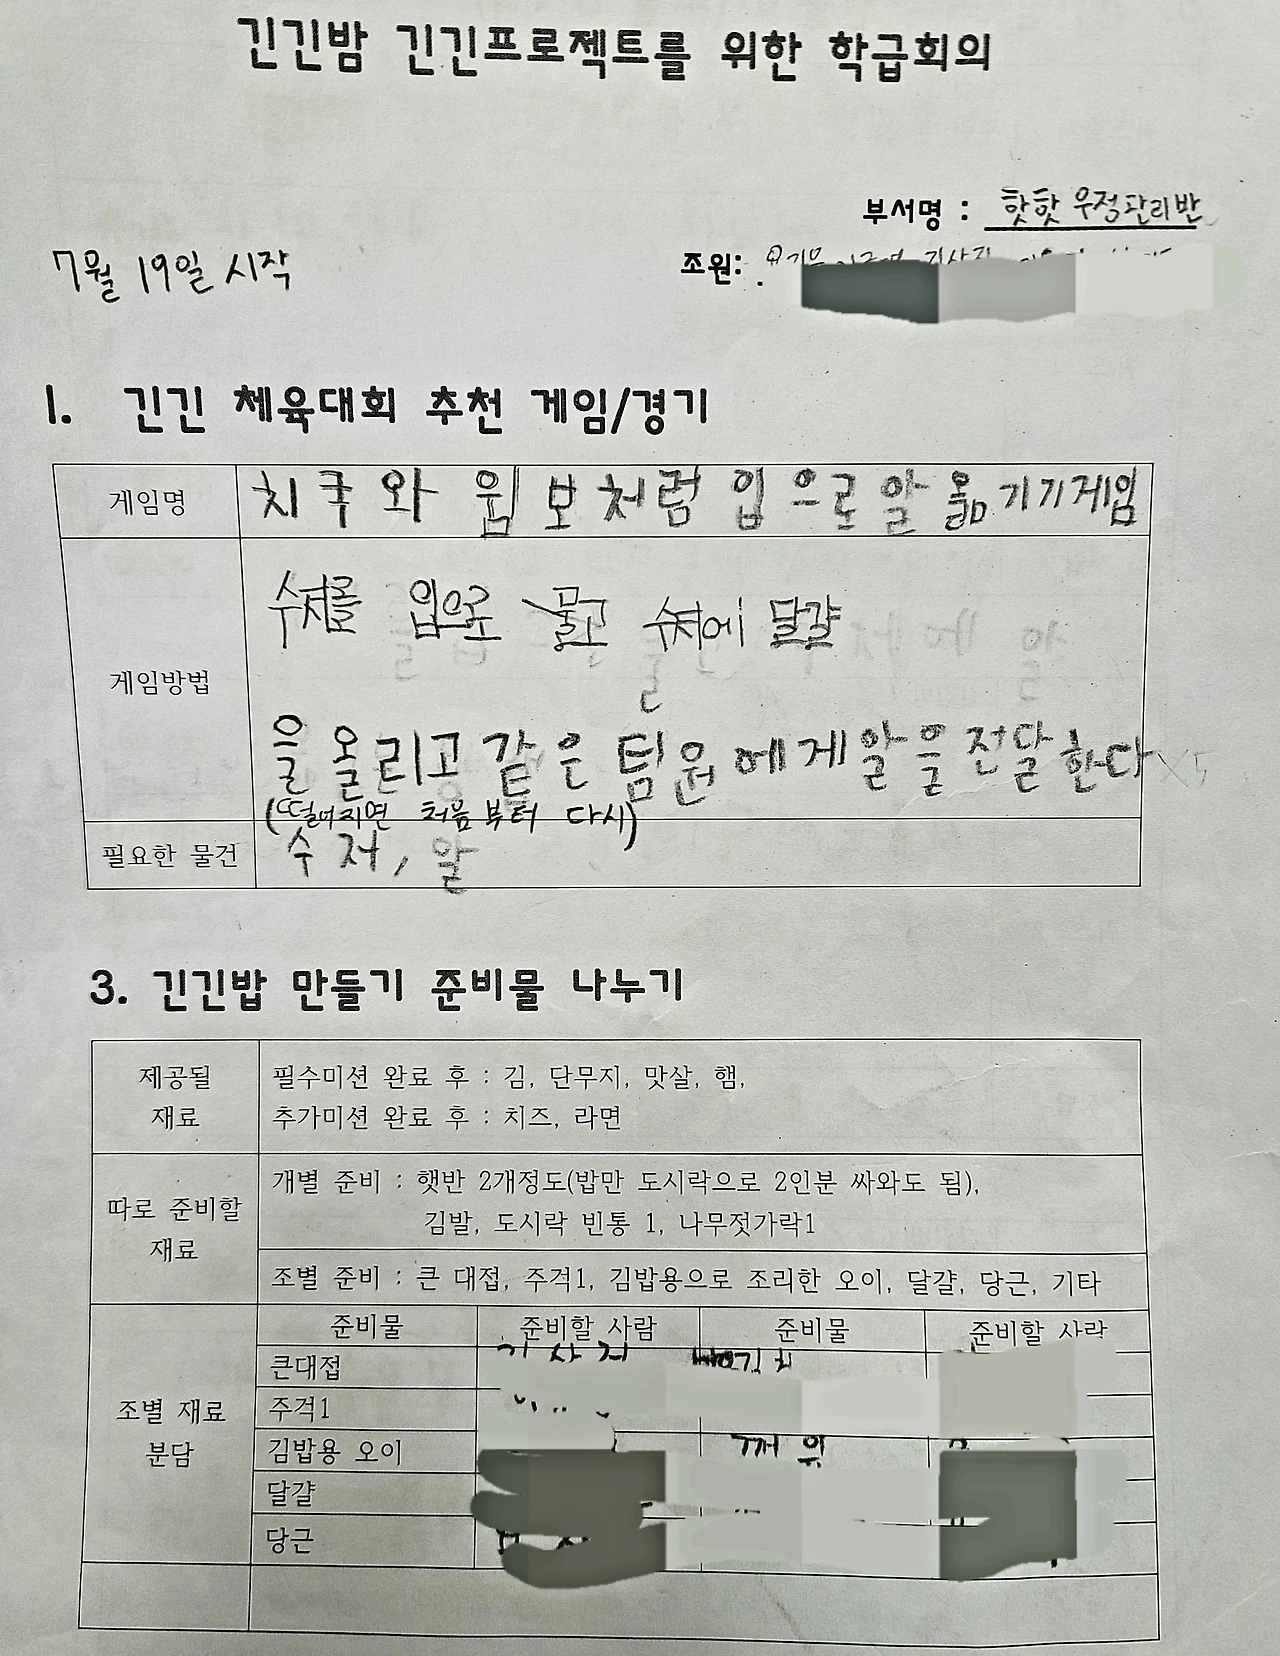 긴긴밤 긴긴프로젝트를 위한 학급회의
부서명 : 핫핫 우정관리반
7월 19일 시작
조원:
1. 긴긴 체육대회 추천 게임/경기
게임명 치쿠와 윔보처럼 입으로 알 옮기기게임
게임방법 수저를 입으로 물고 수저에 달걀
을 올리고 같은 팀원에게 알을 전달한다
(떨어지면 처음부터 다시)
필요한 물건 수저, 알
3. 긴긴밥 만들기 준비물 나누기
제공될 재료
필수미션 완료 후 : 김, 단무지, 맛살, 햄,
추가미션 완료 후 : 치즈, 라면
따로 준비할 재료
개별 준비 : 햇반 2개정도(밥만 도시락으로 2인분 싸와도 됨),
김발, 도시락 빈통 1, 나무젓가락1
조별 준비 : 큰 대접, 주걱1, 김밥용으로 조리한 오이, 달걀, 당근, 기타
조별 재료 분담
준비물 준비할 사람 준비물 준비할 사람
큰대접
주걱1
김밥용 오이
달걀
당근